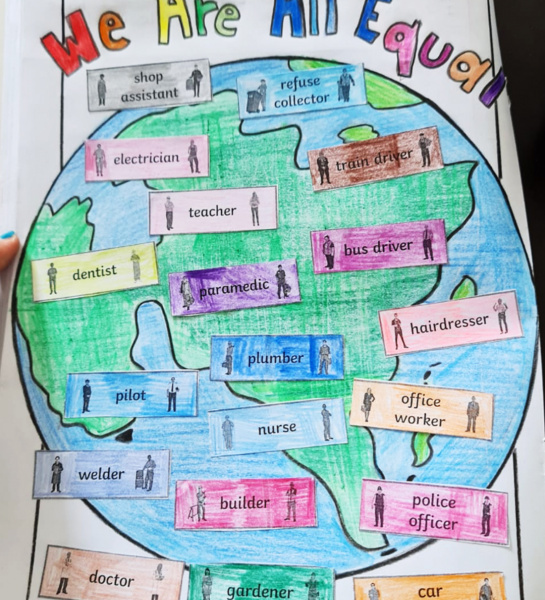 We Are All Equal
shop
assistant
refuse
collector
electrician
train driver
teacher
bus driver
dentist
paramedic
hairdresser
plumber
pilot
office
worker
nurse
welder
builder
police
officer
doctor
gardener
car